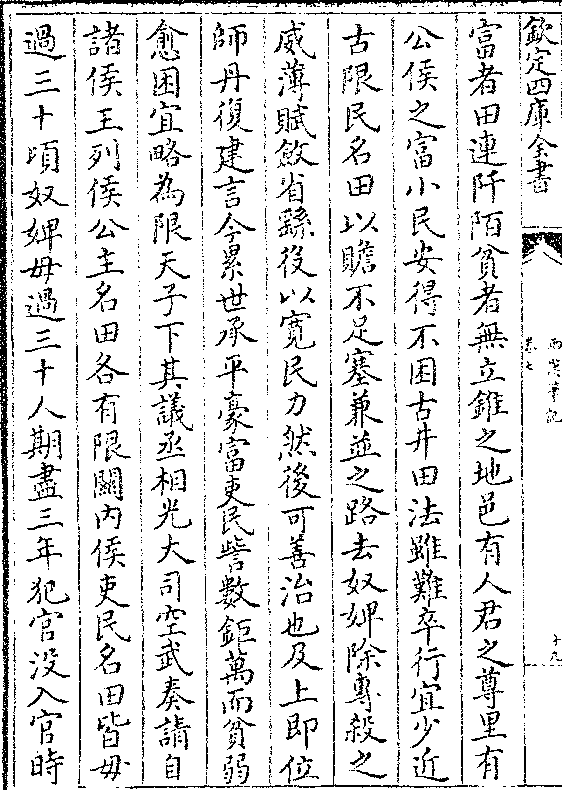 欽定四庫全書
卷七
十九
富者田連阡陌貧者無立錐之地邑有人君之尊里有
公侯之富小民安得不困古井田法雖難卒行宜少近
古限民名田以贍不足塞兼並之路去奴婢除專殺之
威薄賦斂省繇役以寛民力然後可善治也及上即位
師丹復建言今累世承平豪富吏民訾數鉅萬而貧弱
愈困宜略為限天子下其議丞相光大司空武奏請自
諸侯王列侯公主名田各有限關内侯吏民名田皆毋
過三十頃奴婢毋過三十人期盡三年犯官没入官時